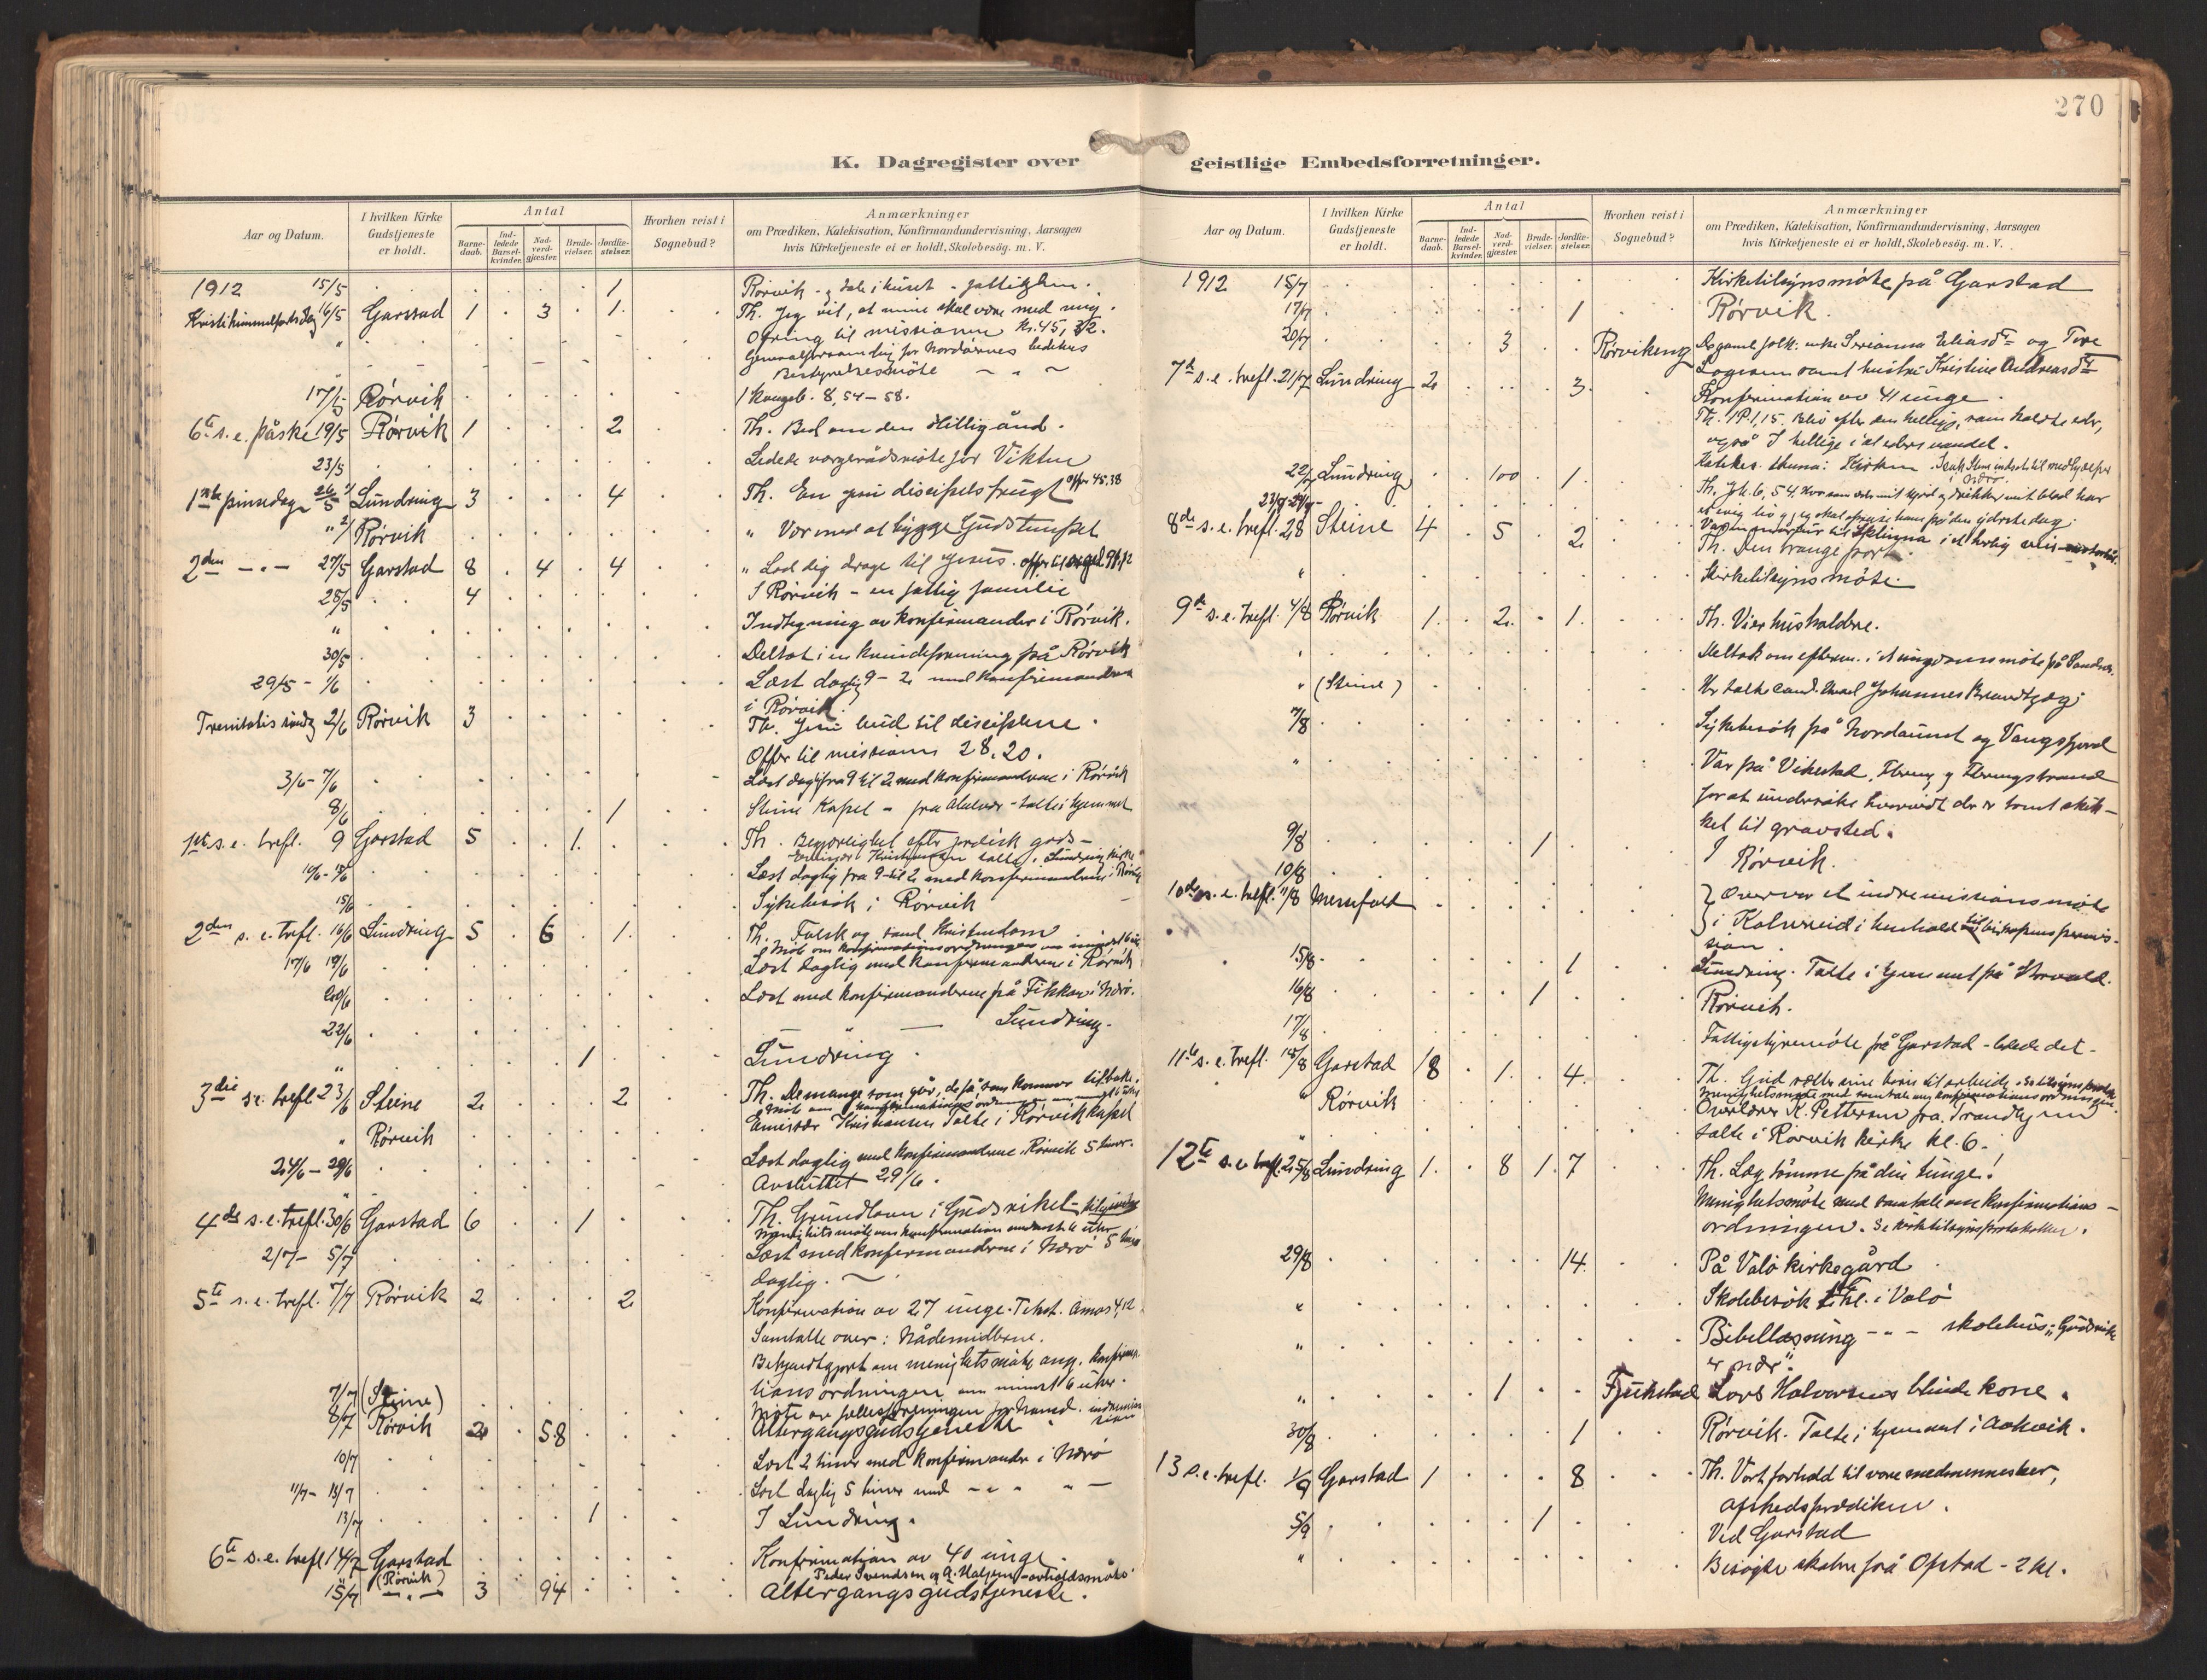 270
K. Dagregister over geistlige Embedsforretninger.
Aar og Datum. I hvilken Kirke Gudstjeneste er holdt. Antal Barne-daab. Ind-ledede Barsel-kvinder. Nad-verd-gjæster. Brude-vielser. Jordfæ-stelser. Hvorhen reist i Sognebud? Anmærkninger om Prædiken, Katekisation, Konfirmandundervisning, Aarsagen hvis Kirketjeneste ei er holdt, Skolebesög. m. V.
1912 15/5 1 Rørvik - tale i huset -
Kristi himmelfartsdag 16/5 Garstad 1 3 1 Th. Jeg vil, at mine skal være med mig.
" Ofring til missionen Kr. 45,32.
Generalforsamling for Nordøernes
" Bestyrelsesmöte
17/5 Rørvik 1 Kongeb. 8, 54-58.
6te s. e. påske 19/5 Rørvik 1 2 Th. Bed om den Hellig ånd.
23/5 Ledede vergerådsmöte for Vikten
1ste pinsedag 26/5 Lundring 3 4 Th. En discipels frugt offer 45,38
" 2/ Rørvik " Vær med at bygge Guds tempel
2den - " - 27/5 Garstad 8 4 4 " Lad dig drage til Jesus.
28/5 4 I Rørvik - en fattig familie
" Indtegning av konfirmander i Rørvik.
30/5 Deltat i en kvindeforening på Rørvik
29/5 - 1/6 Læst daglig 9-2 med konfirmanderne
i Rørvik
Trenitatis søndag 2/6 Rørvik 3 Th. Jesu bud til disciplene.
Offer til missionen 28.20.
3/6 - 7/6 Læst dagl fra 9 til 2 med konfirmanderne i Rørvik
8/6 1 Steine Kapel - fra - talte i hjemmet
1ste s. e. trefl. 9 Garstad 5 1 Th. Begjærlighet efter jordisk gods -
Læst daglig fra 9 til 2 med konfirmanderne i Rørvik
15/6 Sykebesök i Rørvik
2den s. e. trefl. 16/6 Lundring 5 6 1 Th. Falsk og sand Kristendom
17/6 19/6 Læst daglig med konfirmanderne i Rørvik
20/6 Læst med konfirmanderne på i Nærö.
22/6 Lundring.
" 1 Lundring.
3die s. e. trefl 23/6 Steine 2 2 Th. De mange som går, de få som kommer tilbake.
" Rørvik Emissær Kristiansen talte i Rørvik kapel
24/6 - 29/6 Læst daglig med konfirmanderne i Rørvik 5 timer.
Avsluttet 29/6.
4de s. e. trefl. 30/6 Garstad 6 1 Th. Grundloven i Guds riket -
2/7 - 5/7 Læst med konfirmanderne i Nærö 5 timer
daglig.
5te s. e. trefl. 7/7 Rørvik 2 2 Konfirmation av 27 unge. Tekst. Amos 4,12
Samtalte over: Nådemidlene.
Bekjendtgjort om menighetsmöte ang. konfirma-
tionsordningen om mindst 6 uker.
7/7 (Steine) Möte av fællesforeningen for
8/7 Rørvik 2 58 Altergangsgudstjeneste
10/7 Læst 2 timer med konfirmander i Nærö
11/7 - 13/7 Læst daglig 5 timer med - " - " -
13/7 1 I Lundring.
6te s. e. trefl 14/7 Garstad Konfirmation av 40 unge.
" (Rørvik) Peder Svendsen og
15/7 - " - 3 94 Altergangsgudstjeneste.
Aar og Datum. I hvilken Kirke Gudstjeneste er holdt. Antal Barne-daab. Ind-ledede Barsel-kvinder. Nad-verd-gjæster. Brude-vielser. Jordfæ-stelser. Hvorhen reist i Sognebud? Anmærkninger om Prædiken, Katekisation, Konfirmandundervisning, Aarsagen hvis Kirketjeneste ei er holdt, Skolebesög. m. V.
1912 15/7 Kirketilsynsmöte på Garstad
17/7 1 Rørvik.
20/7 3 Rørvikeng gamle folk: enke og Tore
7de s. e. trefl. 21/7 Lundring 2 3 samt hustru Kristine Andreasdt
Konfirmation av 41 unge.
Th. 1 P. 1,15. Bliv efter den hellige, som kaldte eder,
også I hellige i al eders vandel.
22/7 Lundring 100 1
Th. Joh. 6, 54. Hver som mit kjød og drikker mit blod har
et evig liv og jeg skal opreise ham på den yderste dag.
8de s. e. trefl. 28 Steine 4 5 2 Th. Den trange port.
" Kirketilsynsmöte.
9de s. e. trefl. 4/8 Rørvik 1 2 1 Th. Vi er husholdere.
" Deltok om efterm. i et ungdomsmöte på
" (Steine) Johannes Brandtzæg
7/8 Sykebesök på Nordaunet og Vangsfjord
" Var på Vikestad,
for at undersøke hvorvidt der er tomt skik-
ket til gravsted.
9/8 1 I Rørvik.
10/8
10de s. e. trefl. 11/8 Overvar et indremissionsmöte
i Kolvereid i henhold til biskopens permis-
sion.
15/8 1 Lundring. Talte i hjemmet på
16/8 1 Rørvik.
17/8 Fattigstyremöte på Garstad - ledede det.
11te s. e. trefl. 18/8 Garstad 8 1 4 Th. Gud sætter sine børn til arbeide.
" Rørvik Overlærer K. Pettersen fra Trondhjem
" talte i Rørvik kirke kl. 6.
12te s. e. trefl. 25/8 Lundring 1 8 1 7 Th. Læg tömme på din tunge!
Menighetsmöte med samtale over konfirmations-
ordningen. Se kirketilsynsprotokollen.
29/8 14 På Valö kirkegård
" Skolebesök i Valö
" Bibellæsning - " - skolehus: "Gudsrike
er nær".
" 1 Fjukstad Lars Halvorsens blinde kone.
30/8 1 Rørvik. Talte i hjemmet i
13 s. e. trefl. 1/9 Garstad 1 8 Th. Vort forhold til vore medmennesker,
afskedsprædiken.
5/9 1 Ved Garstad
" Besøgte skolen på Opstad - 2 kl.